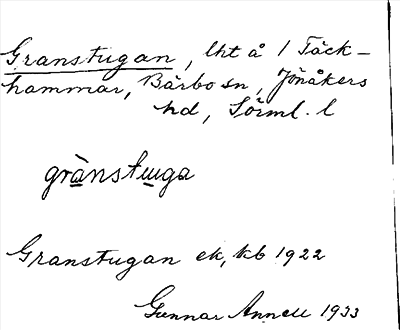 Granstugan, lht å 1 Täck-
hammar, Bärbo sn, Jönåkers
hd, Sörml. l
grànstuga
Granstugan ek, kb 1922
Gunnar Annell 1933